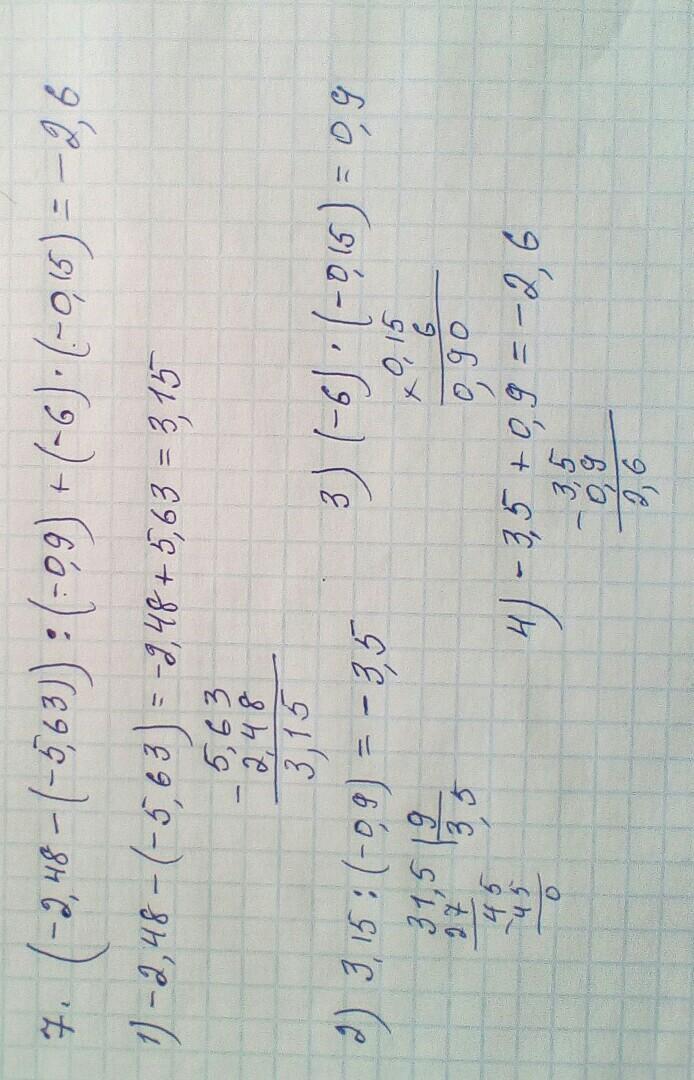 7. (-2,48-(-5,63)):(-0,9)+(-6)·(-0,15)=-2,6
1) -2,48-(-5,63)=-2,48+5,63=3,15
- 5,63
2,48
3,15
2) 3,15:(-0,9)=-3,5
31,5 | 9
27 3,5
-45
45
0
3) (-6)·(-0,15)=0,9
× 0,15
6
0,90
4) -3,5+0,9=-2,6
- 3,5
0,9
2,6